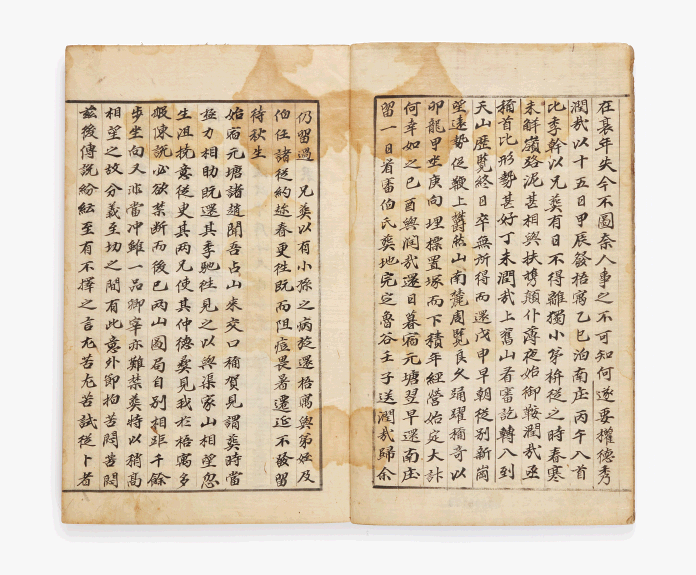 在衰年失今不圖奈人事之不可知何遂要權德秀
潤哉以十五日甲辰發梧寓乙巳泊南庄丙午入首
比季幹以兄葬有日不得離獨小第栴從之時春寒
未解嶺路泥甚相與扶携顛仆薄夜始御鞍潤哉亟
稱首比形勢甚好丁未潤哉上舊山看審訖轉入到
天山歷覽終日卒無所得而還戊申早朝從別新崗
望遠勢促鞭上欝然山南麓周覽良久踊躍稱奇以
卯龍甲坐庚向埋標置塚而下積年經營始定大計
何幸如之己酉與潤哉還日暮宿元塘翌早還南庄
留一日省審伯氏葬地完定魯谷壬子送潤哉歸余
仍留過兄葬以有小孫之病旋還梧寓與第姪及
伯任諸從約近春更徃既而阻痘畏暑遷延不發留
待秋生
始宿元塘諸趙聞吾占山來交口稱賀見謂葬時當
極力相助既還其季馳徃見之以與渠家山相望忽
生沮撓意從臾其兩兄使其仲德彛見我於梧寓多
般陳說必欲禁斷而後已兩山圖局自別相距千餘
步坐向又非當冲雖一品卿宰亦難禁葬特以稍高
相望之故分義至切之間有此意外苦悶苦悶
玆後傳說紛紜至有不擇之言尤苦尤苦試從卜者